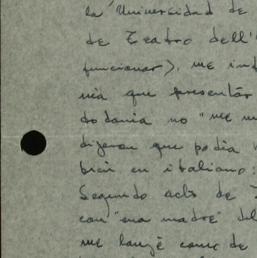 la Universidad de
de Teatro dell'
funcionar), me in
nia que presentar
todavia no "me
dijeron que podia
bir en italiano
Segundo acto de
con "una madre" del
me lancé como de